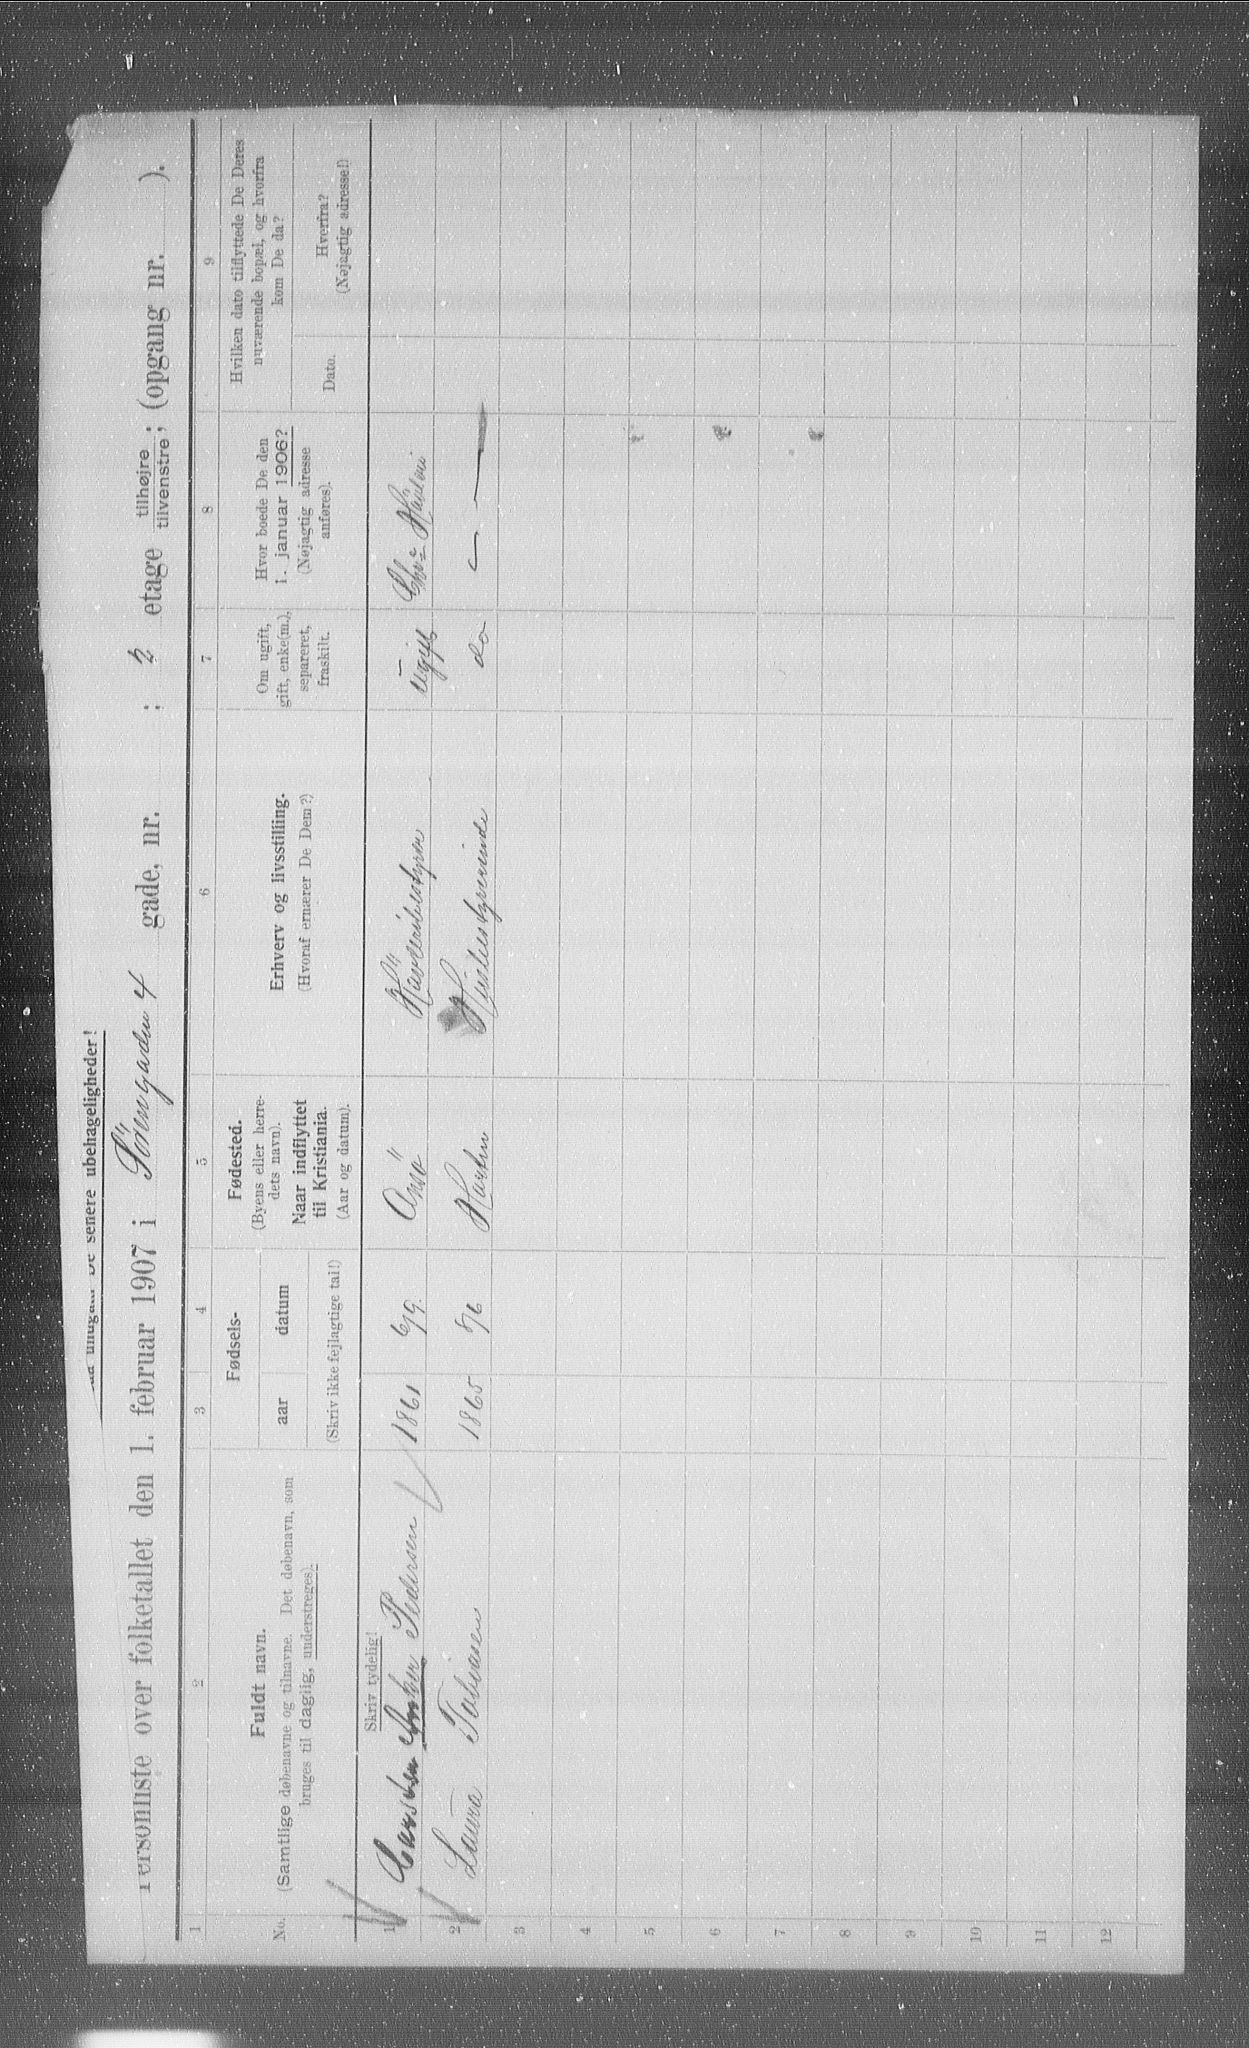 De senere ubehageligheder!
Personliste over folketallet den 1. februar 1907 i Sørengaden 4 gade, nr. ; 2 etage tilhøjre tilvenstre; (opgang nr. ).
1 2 3 4 5 6 7 8 9
No.
Fuldt navn.
(Samtlige døbenavne og tilnavne. Det døbenavn, som
bruges til daglig, understreges).
Fødsels-
aar datum
(Skriv ikke fejlagtige tal!)
Fødested.
(Byens eller herre-
dets navn).
Naar indflyttet
til Kristiania.
(Aar og datum).
Erhverv og livsstilling.
(Hvoraf ernærer De Dem?)
Om ugift,
gift, enke(m.),
separeret,
fraskilt.
Hvor boede De den
1. januar 1906?
(Nøjagtig adresse
anføres).
Hvilken dato tilflyttede De Deres
nuværende bopæl, og hvorfra
kom De da?
Dato.
Hvorfra?
(Nøjagtig adresse!)
Skriv tydelig!
1 Pedersen 1861 6/9 ugift
2 Laura Tobiasen 1865 5/6 Husbestyrerinde do
3
4
5
6
7
8
9
10
11
12